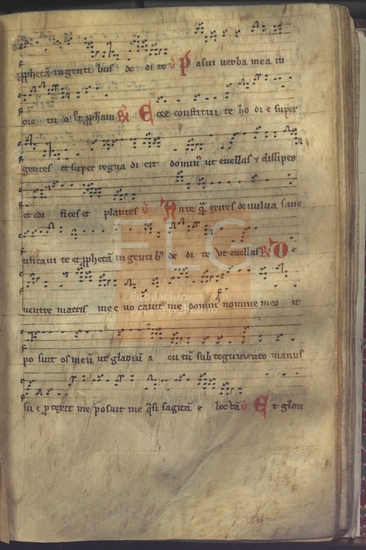 pphetā in genti bus de di te v̄ Posui verba mea in
ore tuo Ecce constitui te ho di e super
gentes et super regna di cit domin' ut evellas & dissipes
et edi fices et plantes v̄ Ante exires de vulva sanc
tificavi te et pphetā in genti b; de di te Ut evellas R̄ De
ventre matris me e vo cavit me domin' nomine meo et
po suit os meū ut gladiū a cu tū sub tegumento manus
su e ptexit me posuit me q̄si sagitā e lectā v̄ Et glori
FLC